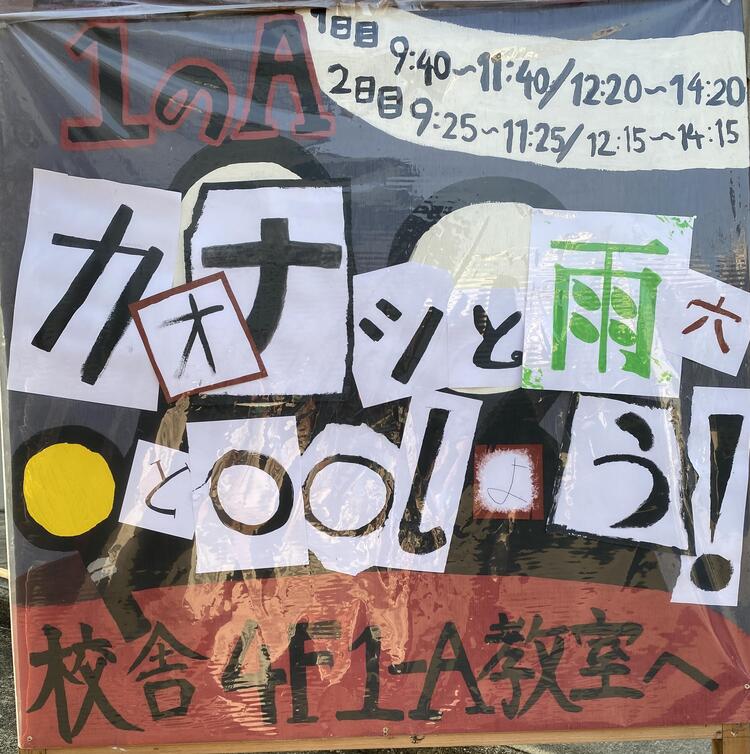 1のA
1日目 9:40~11:40/12:20~14:20
2日目 9:25~11:25/12:15~14:15
カオナシと雨六
●と○○しよう!
校舎4F1-A教室へ